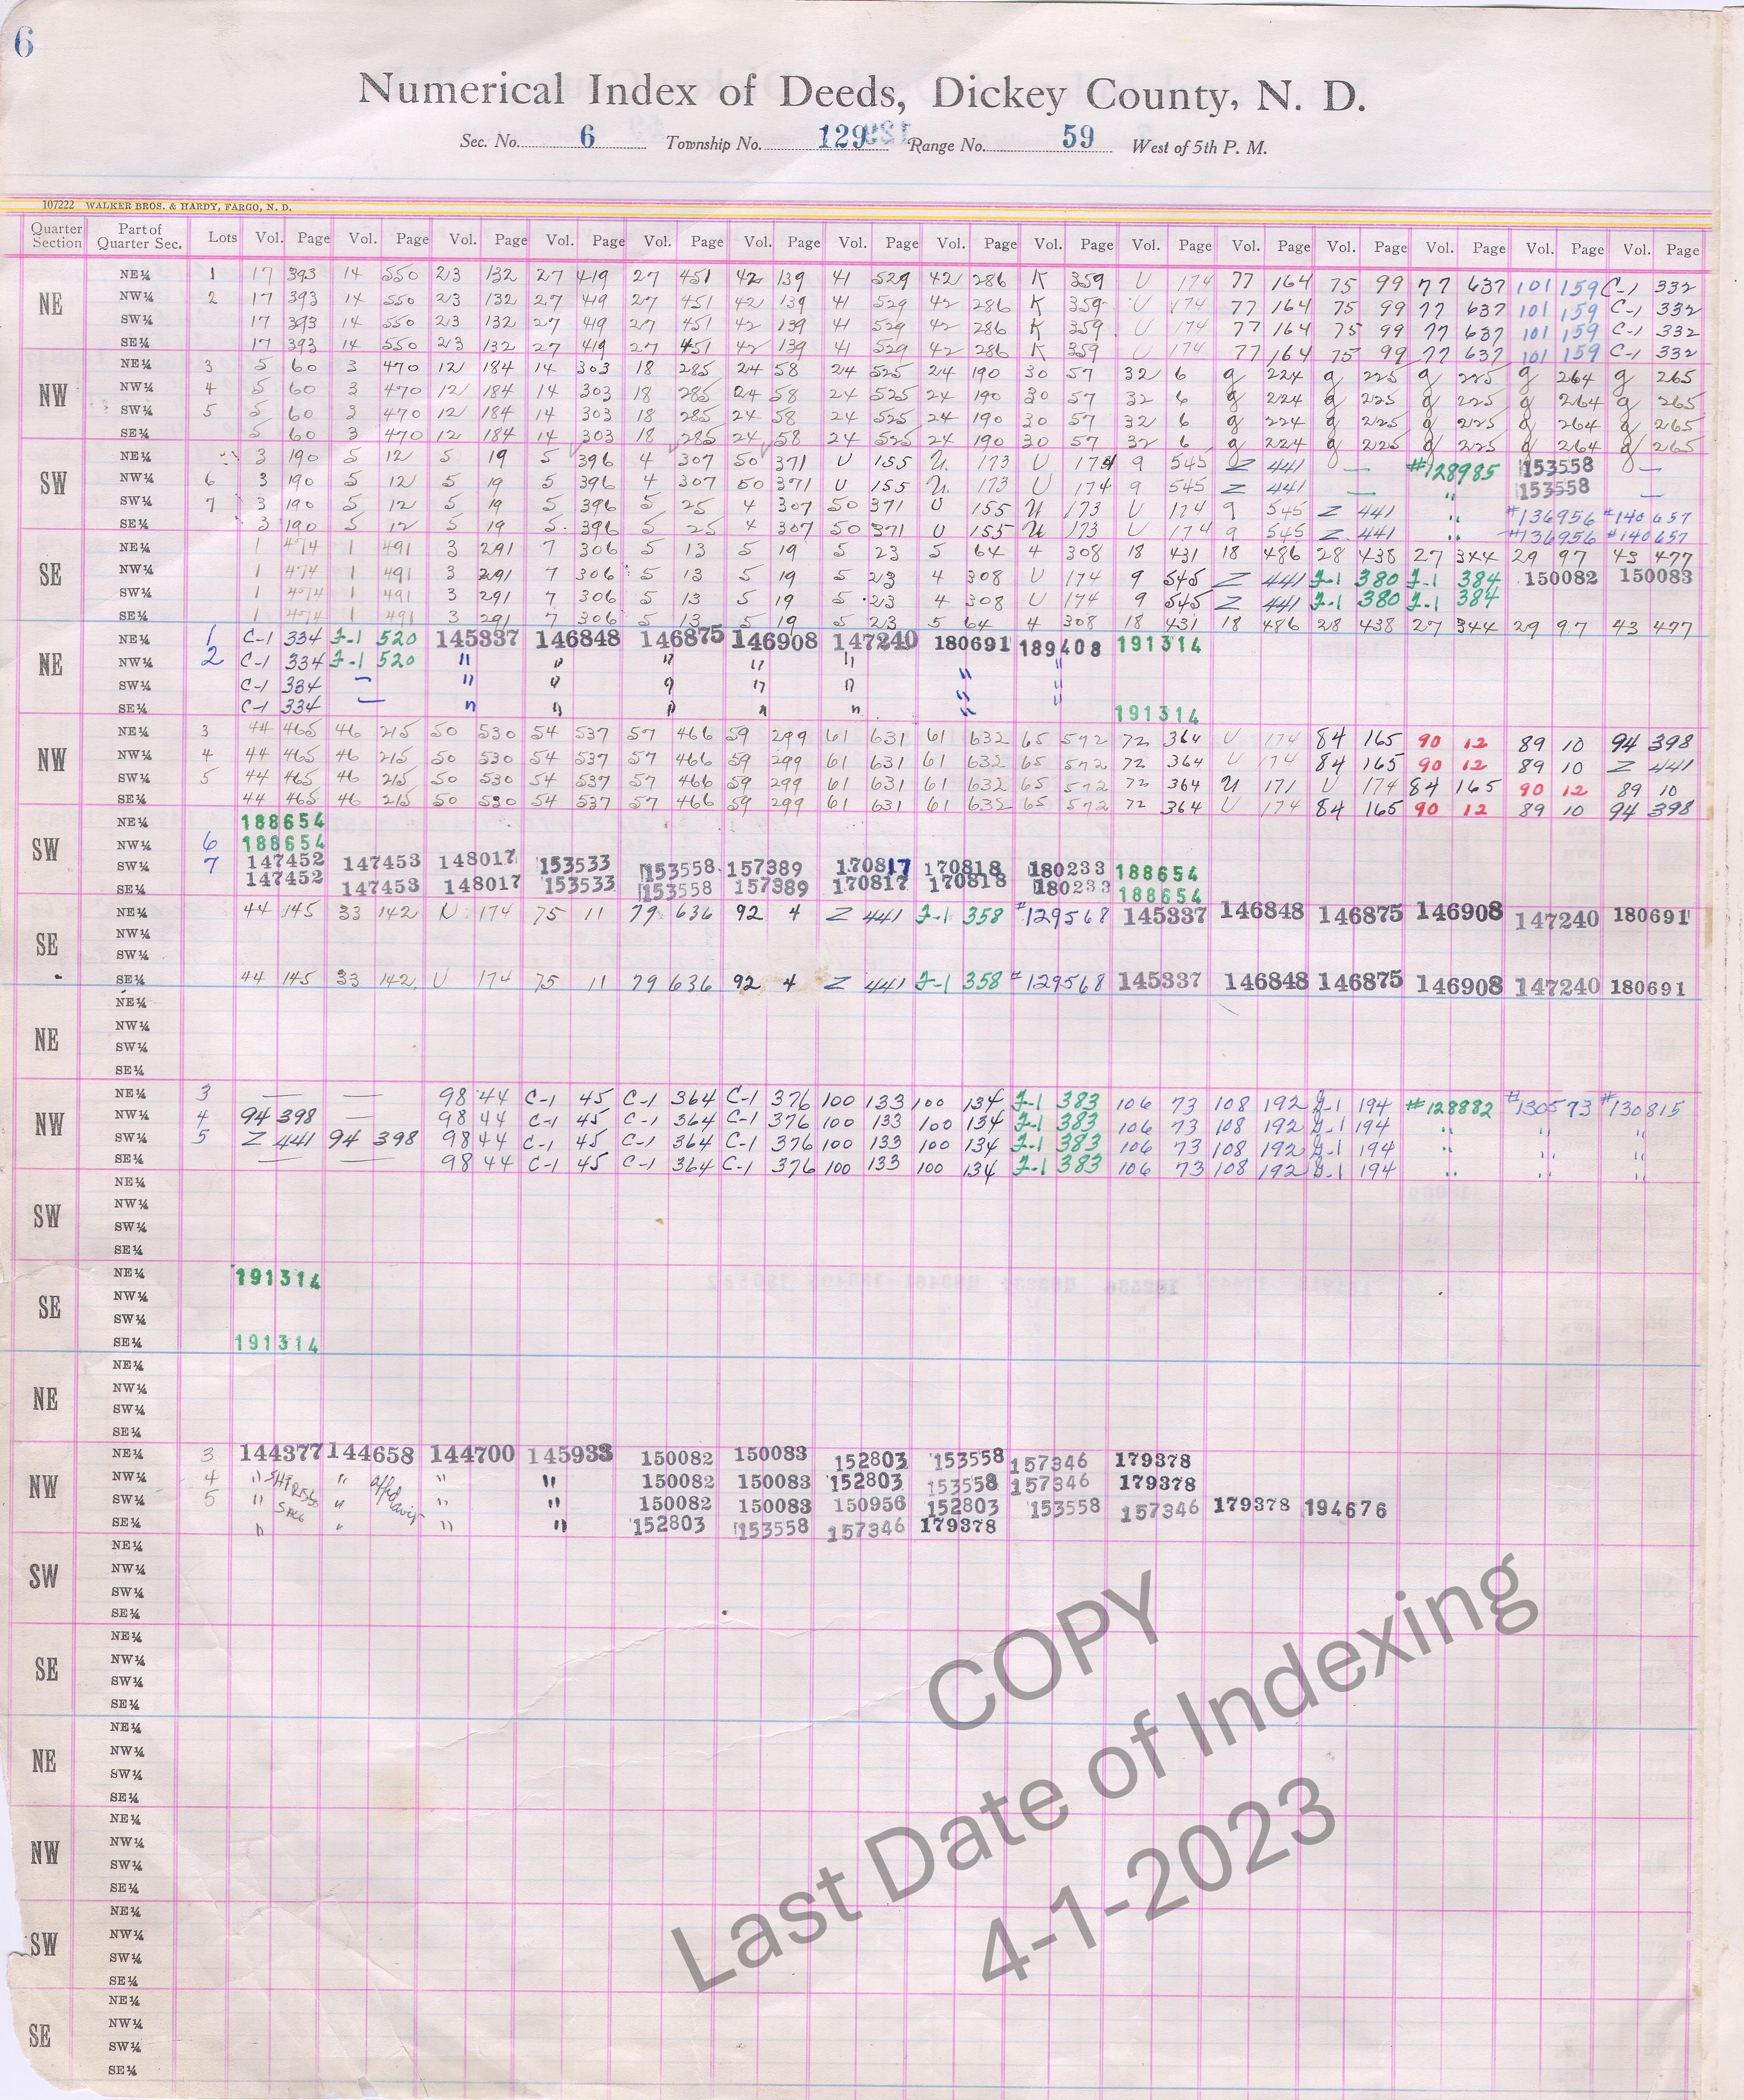 6
Numerical Index of Deeds, Dickey County, N. D.
Sec. No. 6 Township No. 129 Range No. 59 West of 5th P. M.
107222 WALKER BROS. & HARDY, FARGO, N. D.
Quarter Section Part of Quarter Sec. Lots Vol. Page Vol. Page Vol. Page Vol. Page Vol. Page Vol. Page Vol. Page Vol. Page Vol. Page Vol. Page Vol. Page Vol. Page Vol. Page Vol. Page Vol. Page
NE
NE¼ 1 17 393 14 550 23 132 27 419 27 451 42 139 41 529 42 286 K 359 U 174 77 164 75 99 77 637 101 159 C-1 332
NW¼ 2 17 393 14 550 23 132 27 419 27 451 42 139 41 529 42 286 K 359 U 174 77 164 75 99 77 637 101 159 C-1 332
SW¼ 17 393 14 550 23 132 27 419 27 451 42 139 41 529 42 286 K 359 U 174 77 164 75 99 77 637 101 159 C-1 332
SE¼ 17 393 14 550 23 132 27 419 27 451 42 139 41 529 42 286 K 359 U 174 77 164 75 99 77 637 101 159 C-1 332
NW
NE¼ 3 5 60 3 470 12 184 14 303 18 285 24 58 24 525 24 190 30 57 32 6 g 224 g 225 g 225 g 264 g 265
NW¼ 4 5 60 3 470 12 184 14 303 18 285 24 58 24 525 24 190 30 57 32 6 g 224 g 225 g 225 g 264 g 265
SW¼ 5 5 60 3 470 12 184 14 303 18 285 24 58 24 525 24 190 30 57 32 6 g 224 g 225 g 225 g 264 g 265
SE¼ 5 60 3 470 12 184 14 303 18 285 24 58 24 525 24 190 30 57 32 6 g 224 g 225 g 225 g 264 g 265
SW
NE¼ 3 190 5 12 5 19 5 396 4 307 50 371 U 155 U 173 U 174 9 545 Z 441 — #128985 153558 —
NW¼ 6 3 190 5 12 5 19 5 396 4 307 50 371 U 155 U 173 U 174 9 545 Z 441 — " 153558 —
SW¼ 7 3 190 5 12 5 19 5 396 5 25 4 307 50 371 U 155 U 173 U 174 9 545 Z 441 " #136956 #140657
SE¼ 3 190 5 12 5 19 5 396 5 25 4 307 50 371 U 155 U 173 U 174 9 545 Z 441 " #136956 #140657
SE
NE¼ 1 474 1 491 3 291 7 306 5 13 5 19 5 23 5 64 4 308 18 431 18 486 28 438 27 344 29 97 43 477
NW¼ 1 474 1 491 3 291 7 306 5 13 5 19 5 23 4 308 U 174 9 545 Z 441 F-1 380 F-1 384 150082 150083
SW¼ 1 474 1 491 3 291 7 306 5 13 5 19 5 23 4 308 U 174 9 545 Z 441 F-1 380 F-1 384
SE¼ 1 474 1 491 3 291 7 306 5 13 5 19 5 23 5 64 4 308 18 431 18 486 28 438 27 344 29 97 43 477
NE
NE¼ 1 C-1 334 F-1 520 145337 146848 146875 146908 147240 180691 189408 191314
NW¼ 2 C-1 334 F-1 520 " " " " " " "
SW¼ C-1 334 — " " " " " " "
SE¼ C-1 334 — " " " " " " 191314
NW
NE¼ 3 44 465 46 215 50 530 54 537 57 466 59 299 61 631 61 632 65 572 72 364 U 174 84 165 90 12 89 10 94 398
NW¼ 4 44 465 46 215 50 530 54 537 57 466 59 299 61 631 61 632 65 572 72 364 U 174 84 165 90 12 89 10 Z 441
SW¼ 5 44 465 46 215 50 530 54 537 57 466 59 299 61 631 61 632 65 572 72 364 U 171 U 174 84 165 90 12 89 10
SE¼ 44 465 46 215 50 530 54 537 57 466 59 299 61 631 61 632 65 572 72 364 U 174 84 165 90 12 89 10 94 398
SW
NE¼ 188654
NW¼ 6 188654
SW¼ 7 147452 147453 148017 153533 153558 157389 170817 170818 180233 188654
SE¼ 147452 147453 148017 153533 153558 157389 170817 170818 180233 188654
SE
NE¼ 44 145 33 142 U 174 75 11 79 636 92 4 Z 441 F-1 358 #129568 145337 146848 146875 146908 147240 180691
NW¼
SW¼
SE¼ 44 145 33 142 U 174 75 11 79 636 92 4 Z 441 F-1 358 #129568 145337 146848 146875 146908 147240 180691
NE
NE¼
NW¼
SW¼
SE¼
NW
NE¼ 3 — — 98 44 C-1 45 C-1 364 C-1 376 100 133 100 134 F-1 383 106 73 108 192 G-1 194 #128882 #130573 #130815
NW¼ 4 94 398 — 98 44 C-1 45 C-1 364 C-1 376 100 133 100 134 F-1 383 106 73 108 192 G-1 194 " " "
SW¼ 5 Z 441 94 398 98 44 C-1 45 C-1 364 C-1 376 100 133 100 134 F-1 383 106 73 108 192 G-1 194 " " "
SE¼ — — 98 44 C-1 45 C-1 364 C-1 376 100 133 100 134 F-1 383 106 73 108 192 G-1 194 " " "
SW
NE¼
NW¼
SW¼
SE¼
SE
NE¼ 191314
NW¼
SW¼
SE¼ 191314
NE
NE¼
NW¼
SW¼
SE¼
NW
NE¼ 3 144377 144658 144700 145933 150082 150083 152803 153558 157346 179378
NW¼ 4 " " " " 150082 150083 152803 153558 157346 179378
SW¼ 5 " " " " 150082 150083 150956 152803 153558 157346 179378 194676
SE¼ " " " " 152803 153558 157346 179378
SW
NE¼
NW¼
SW¼
SE¼
SE
NE¼
NW¼
SW¼
SE¼
NE
NE¼
NW¼
SW¼
SE¼
NW
NE¼
NW¼
SW¼
SE¼
SW
NE¼
NW¼
SW¼
SE¼
SE
NE¼
NW¼
SW¼
SE¼
COPY
Last Date of Indexing
4-1-2023